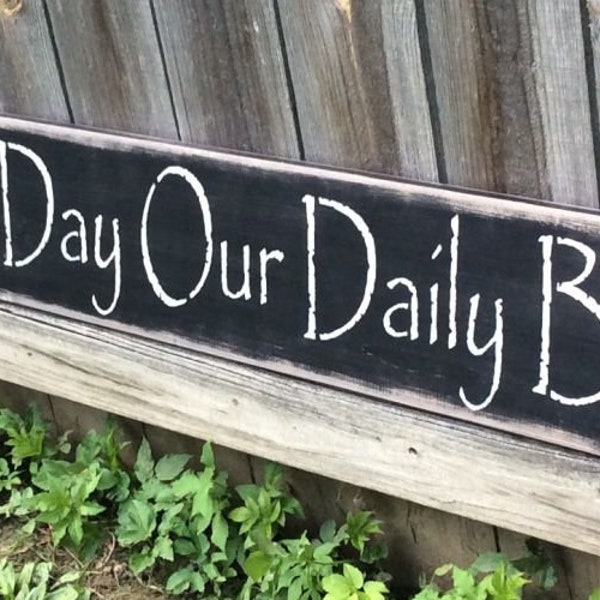 Day Our Daily B